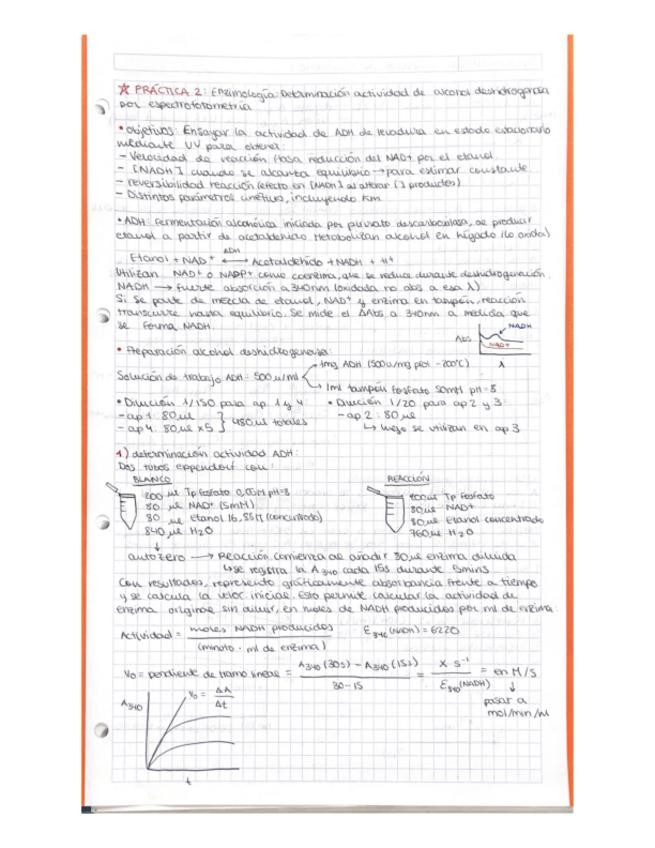 ☆ PRÁCTICA 2: Enzimología: Determinación actividad de alcohol deshidrogenasa
por espectrofotometría
• Objetivos: Ensayar la actividad de ADH de levadura en estado estacionario
mediante UV para obtener:
- Velocidad de reacción (tasa reducción del NAD+ por el etanol
- [NADH] cuando se alcanza equilibrio → para estimar constante
- reversibilidad reacción (efecto en [NADH] al alterar [] productos)
- Distintos parámetros cinéticos, incluyendo Km
• ADH: Fermentación alcohólica iniciada por piruvato descarboxilasa, de producir
etanol a partir de acetaldehído. Metabolizan alcohol en hígado (lo oxida)
ADH
Etanol + NAD+ ⟷ Acetaldehído + NADH + H+
Utilizan NAD+ o NADP+ como coenzima, que se reduce durante deshidrogenación.
NADH → fuerte absorción a 340nm (oxidada no abs a esa λ)
Si se parte de mezcla de etanol, NAD+ y enzima en tampón, reacción
transcurre hasta equilibrio. Se mide el ΔAbs a 340nm a medida que
se forma NADH.
Abs NADH
NAD+
λ
• Preparación alcohol deshidrogenasa:
1mg ADH (500u/mg prot -20ºC)
Solución de trabajo ADH: 500 u/ml
1ml tampón fosfato 50mM pH=8
• Dilución 1/150 para ap 1 y 4 • Dilución 1/20 para ap 2 y 3:
- ap 1: 80 μl - ap 2: 80 μl
- ap 4: 80 μl x5 } 480 μl totales ↳ luego se utilizan en ap 3
1) determinación actividad ADH:
Dos tubos eppendorf con:
BLANCO REACCIÓN
200 μl Tp fosfato 0,05M pH=8 400 μl Tp fosfato
80 μl NAD+ (5mM) 80 μl NAD+
80 μl Etanol 16,85M (concentrado) 80 μl Etanol concentrado
840 μl H2O 760 μl H2O
autozero → Reacción comienza al añadir 80 μl enzima diluida
↳ se registra la A340 cada 15s durante 5mins
Con resultados, represento gráficamente absorbancia frente a tiempo
y se calcula la veloc. inicial. Esto permite calcular la actividad de
enzima original sin diluir, en moles de NADH producidos por ml de enzima:
Actividad = moles NADH producidos / (minuto · ml de enzima) ε340 (NADH) = 6220
V0 = pendiente de tramo lineal = A340 (30s) - A340 (15s) / 30-15 = X s⁻¹ / ε340 (NADH) = en M/s
↓
pasar a
mol/min/ml
A340 V0 = ΔA / Δt
t